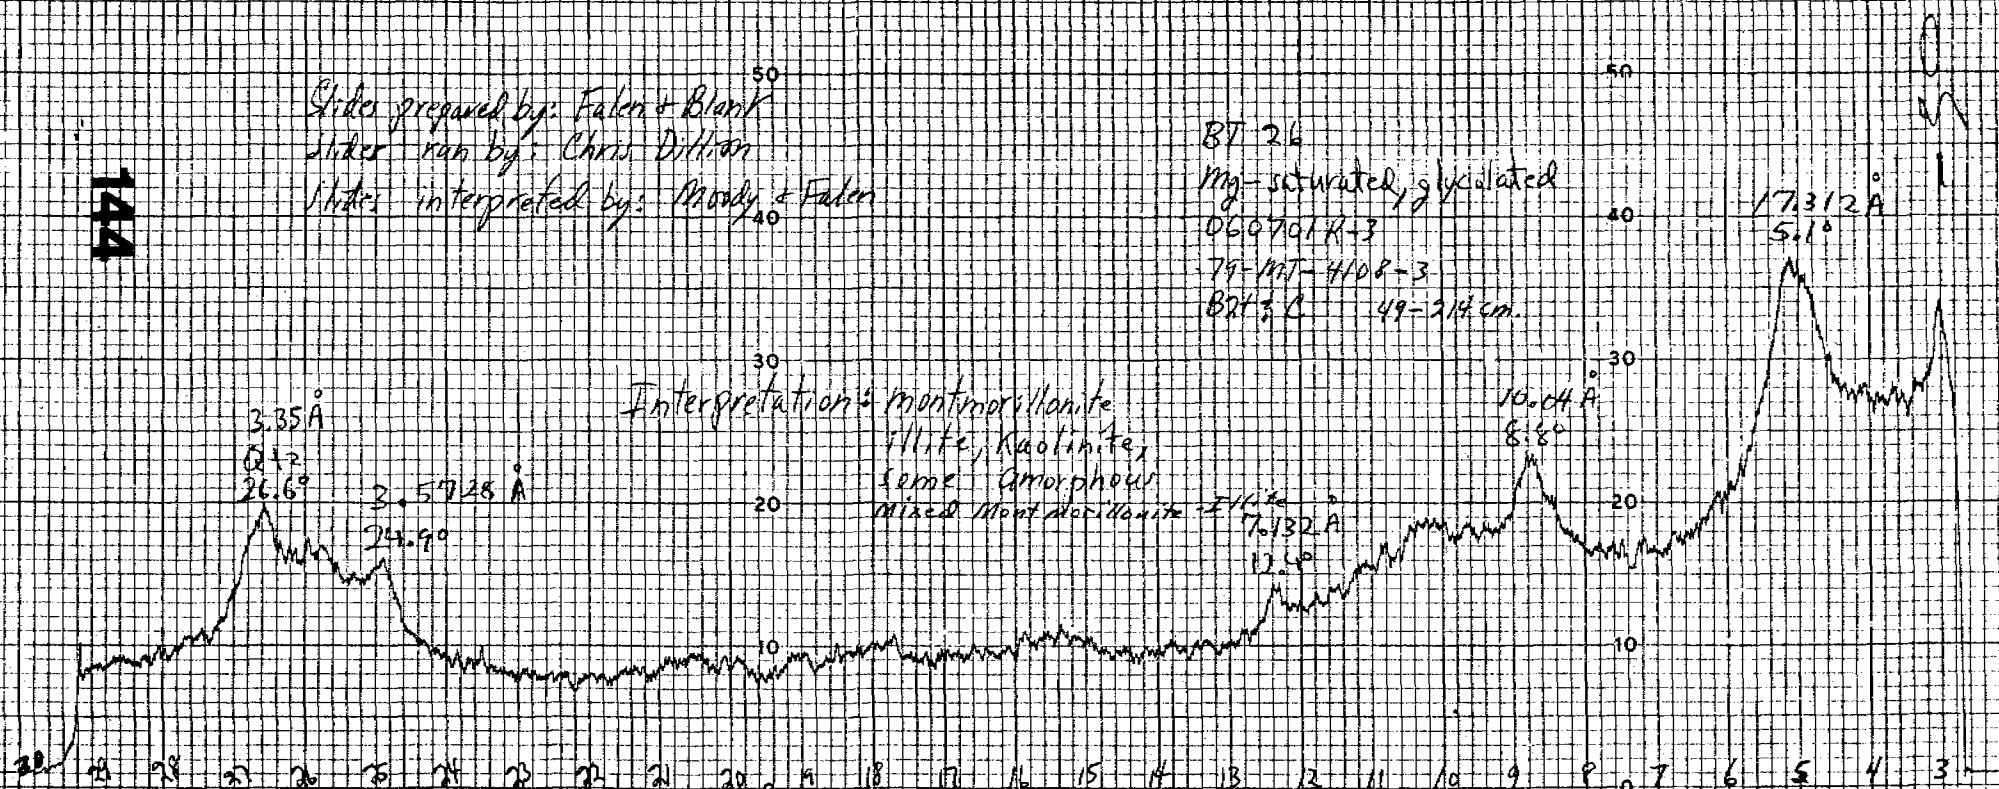 50
50
Slides prepared by: Falen + Blank
Slides ran by: Chris Dillion
Slides interpreted by: Moody & Falen
144
BT 26
Mg-saturated, glycolated
060701R-3
79-MT-4108-3
B2t & C 49-214 cm.
17.312 Å
5.1°
40
40
30
30
Interpretation: montmorillonite
illite, Kaolinite,
some amorphous
mixed Montmorillonite-Illite
3.35 Å
Qtz
26.6°
3.5728 Å
24.9°
10.04 Å
8.8°
7.132 Å
12.4°
20
20
10
10
29 28 27 26 25 24 23 22 21 20 19 18 17 16 15 14 13 12 11 10 9 8 7 6 5 4 3